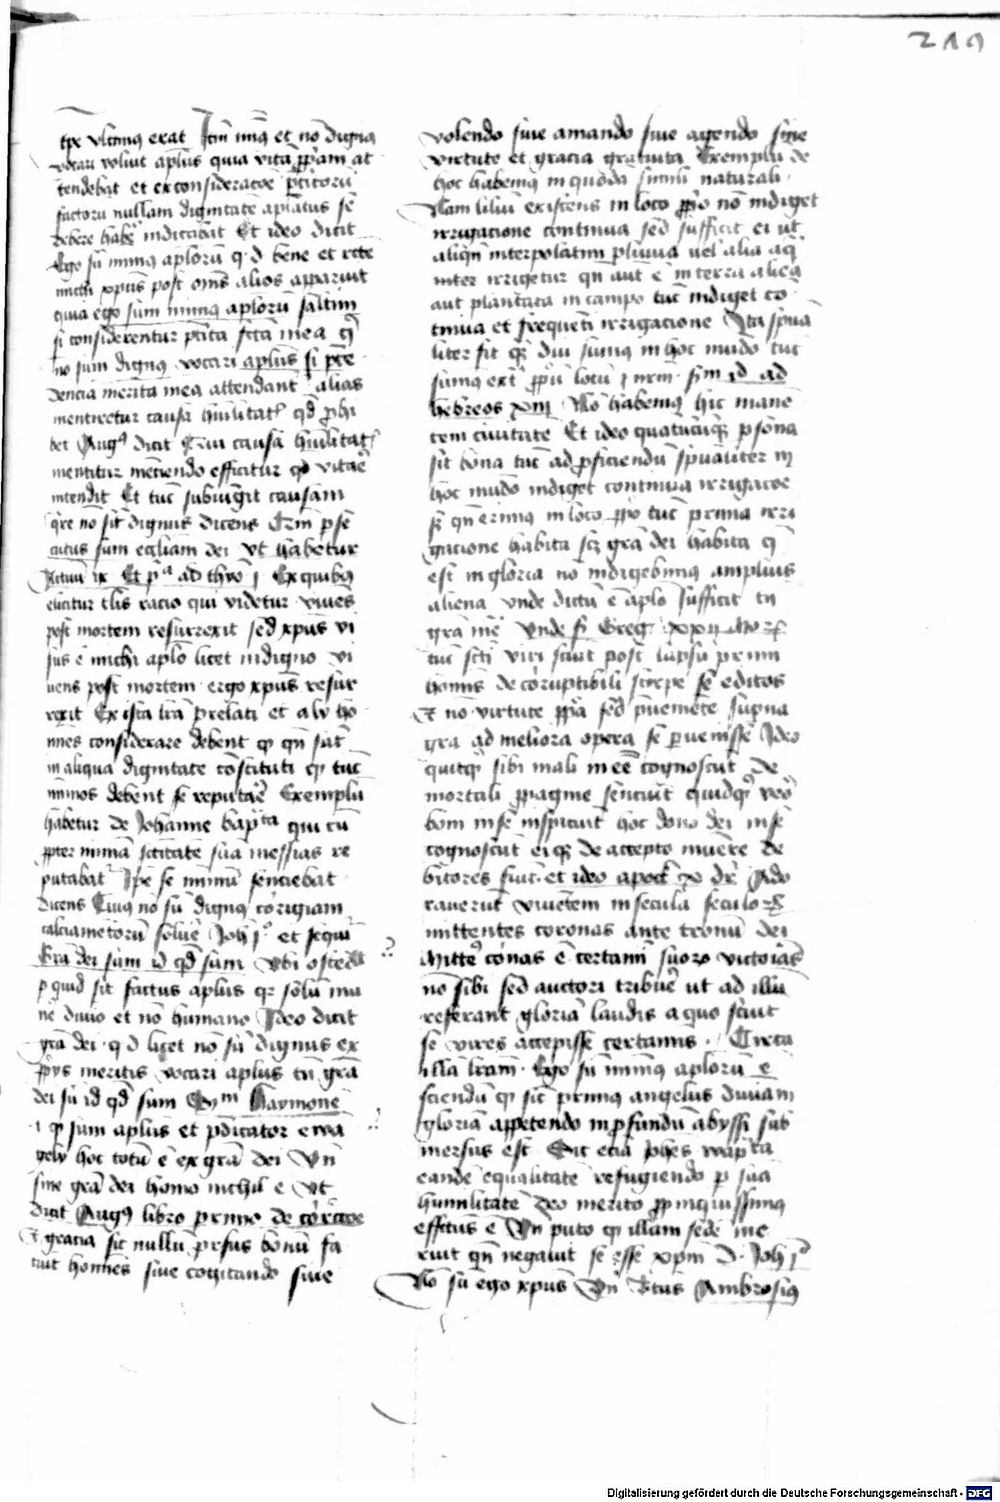 219
tpe vltimus erat Itm nimis et no dignus
vocari voluit aplus quia vita ppriam at
tendebat et ex consideratoe pctitorum
factoru nullam dignitate aplatus se
debere habe indicabat Et ideo dicit
Ego su minimus aplorū q d bene et recte
michi xpus post oms alios apparuit
quia ego sum minimus aplorū saltim
si considerentur pctita fcta mea
no sum dignus vocari aplus si
dencia merita mea attendant alias
mentiretur causa huilitatis qd phi
bet Augus dicit Cum causa huilitatis
mentitur menciendo efficitur qd vitae
intendit Et tuc subiungit causam
qre no sit dignus dicens Qm pse
cutus sum eccliam dei vt habetur
Actuu ix Et pa ad thio j Ex quibus
elicitur tlis racio qui videtur viues
post mortem resurrexit sed xpus vi
sus e michi aplo licet indigno vi
uens post mortem ergo xpus resur
rexit Ex ista lra prelati et aly ho
mines considerare debent qp qn sūt
in aliqua dignitate constituti qp tuc
minos debent se reputae Exemplu
habetur de Johanne bapta qui cu
ppter nimiā sctitate sua messias re
putabat Ipe se minimu senciebat
dicens Cuius no su dignus corrigiam
calciametoru soluē Joh j et sequit
Gra dei sum id qd sum Vbi ostedit
p quid sit factus aplus qr solum mu
nē diuio et no humano Ideo dicit
gra dei q d licet no su dignus ex
pprys meritis vocari aplus tn gra
dei su id qd sum Haymone
i qp sum aplus et pdicator ewa
gely hoc totu e ex gra dei Vn
sine gra dei homo nichil e Vt
dicit Augus libro primo de correctoe
et gracia sic nullu prsus bonu fa
ciut homines siue cogitando siue
volendo siue amando siue agendo sine
virtute et gracia gratuita Exemplu de
hoc habemus in quoda simili naturali
Nam liliu existens in loco pprio no indiget
irrigacione continua sed sufficit ei ut
aliqn interpolatim pluuia uel alia aq
inter irrigetur qn aut e in terra aliena
aut plantata in campo tuc indiget co
tinua et frequeti irrigacione Ita spua
liter fit qr diu sumus in hoc mudo tuc
sumus ext ppriu locu i nrm sm id ad
hebreos xiij No habemus hic mane
tem ciuitate Et ideo quatucuqr psona
sit bona tuc ad pficiendu spualiter in
hoc mudo indiget continua irrigacoe
sz qn erimus in loco pprio tuc prima irri
gacione habita scz gra dei habita q
est in gloria no indigebimus amplius
aliena vnde dictu e aplo Sufficit tn
gra mea Vnde sc Greg xxij Mor
tuc scti viri sciut post lapsu primi
hominis de coruptibili stirpe se editos
Et no virtute ppria sed pueniete supna
gra ad meliora opera se peruenisse Ideo
quitqd sibi mali inee cognoscut de
mortali ppagine senciut quidqd vero
boni in se inspiciut hoc dono dei in se
cognoscut eiqz de accepto munere de
bitores fiut et ideo apoc dr Ado
rauerut viuetem in secula seculorz
mittentes coronas ante tronu dei
Mitte coronas e certamini suorz victorias
no sibi sed auctori tribue ut ad illu
referant gloria laudis a quo sciut
se vires accepisse certaminis Circa
illa lram Ego su minimus aplorū e
sciendu qp sic primus angelus diuinam
gloria appetendo in pfundu abyssi sub
mersus est Sic ecia Johes bapta
eande equalitate refugiendo p sua
humilitate deo merito ppinquissimus
effctus e Vn puto qp illam sede me
ruit qn negauit se esse xpm d Joh j
No su ego xpus Vn btus Ambrosius